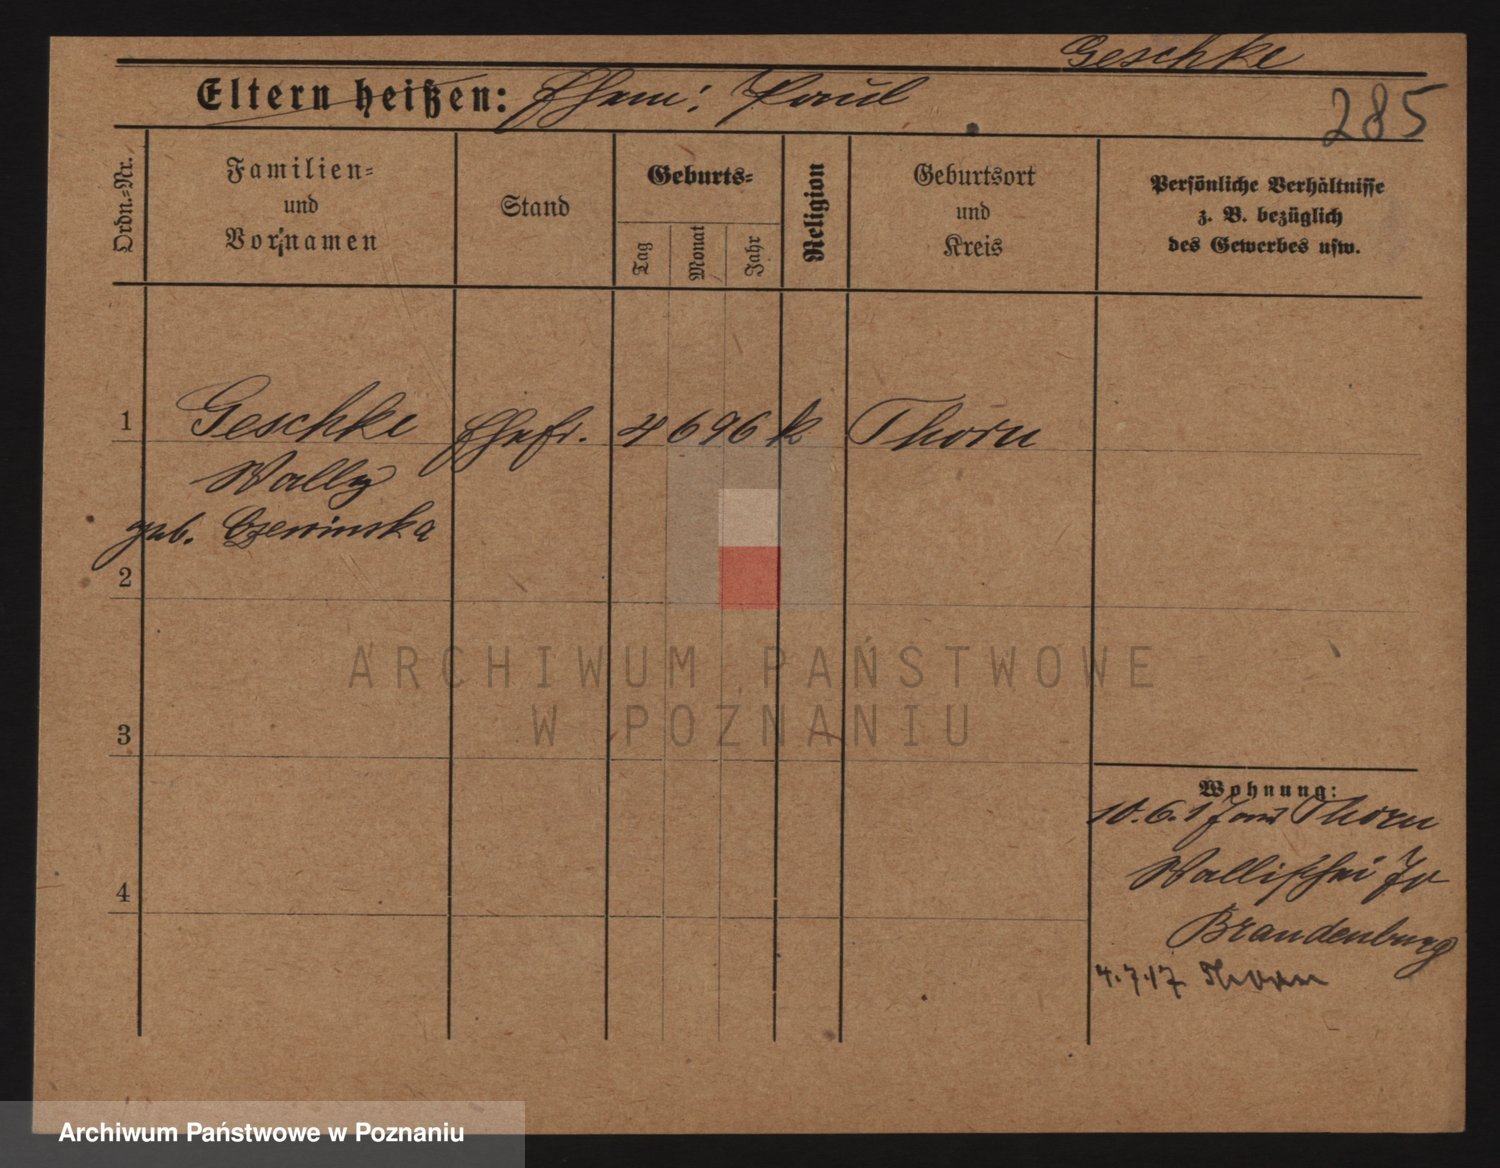 Geschke
Eltern heißen: Ehem: Paul
285
Ordn.-Nr.
Familien-
und
Vornamen
Stand
Geburts-
Tag
Monat
Jahr
Religion
Geburtsort
und
Kreis
Persönliche Verhältnisse
z. B. bezüglich
des Gewerbes usw.
1 Geschke Ehefr. 4 6 96 k Thorn
Wally
geb. Czerwinska
2
3
4
ARCHIWUM PAŃSTWOWE
W POZNANIU
Wohnung:
10.6.17 aus Thorn
Wallischei 70
Brandenburg
4.7.17 Thorn
Archiwum Państwowe w Poznaniu